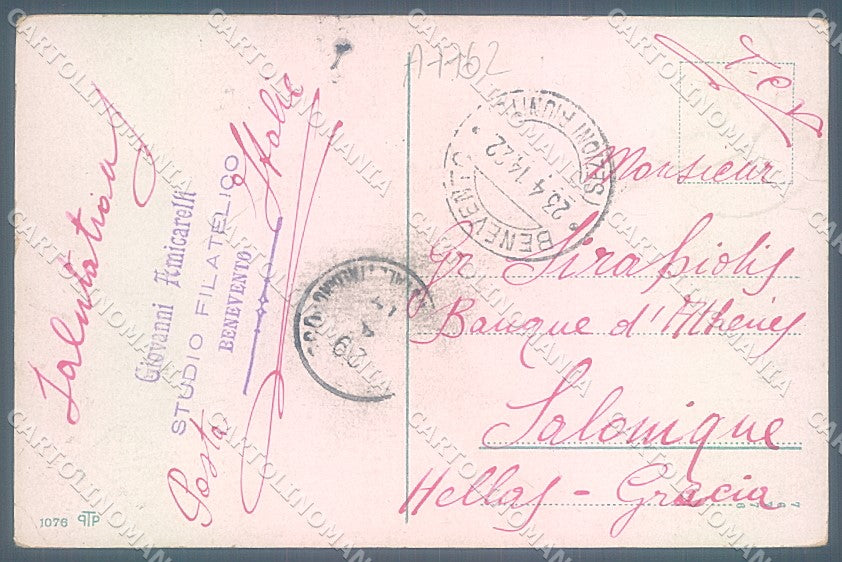 A7762
T.C.V
Salutations
Giovanni Amicarelli
STUDIO FILATELICO
BENEVENTO
Posta Italie
BENEVENTO
23.4 14.22
Monsieur
Gr. Sirapiotis
Banque d'Athènes
Salonique
Hellas - Gracia
1076 PTP
CARTOLINOMANIA